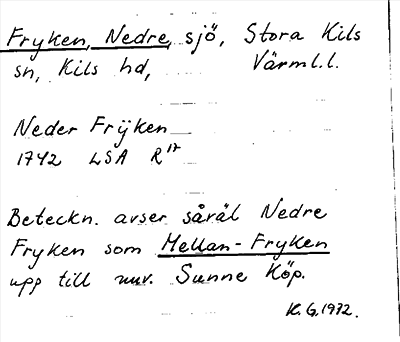 Fryken, Nedre, sjö, Stora Kils
sn, Kils hd, Värml.l.
Neder Frÿken
1742 LSA R¹⁷
Beteckn. avser såväl Nedre
Fryken som Mellan-Fryken
upp till nuv. Sunne Köp.
K.G. 1932.